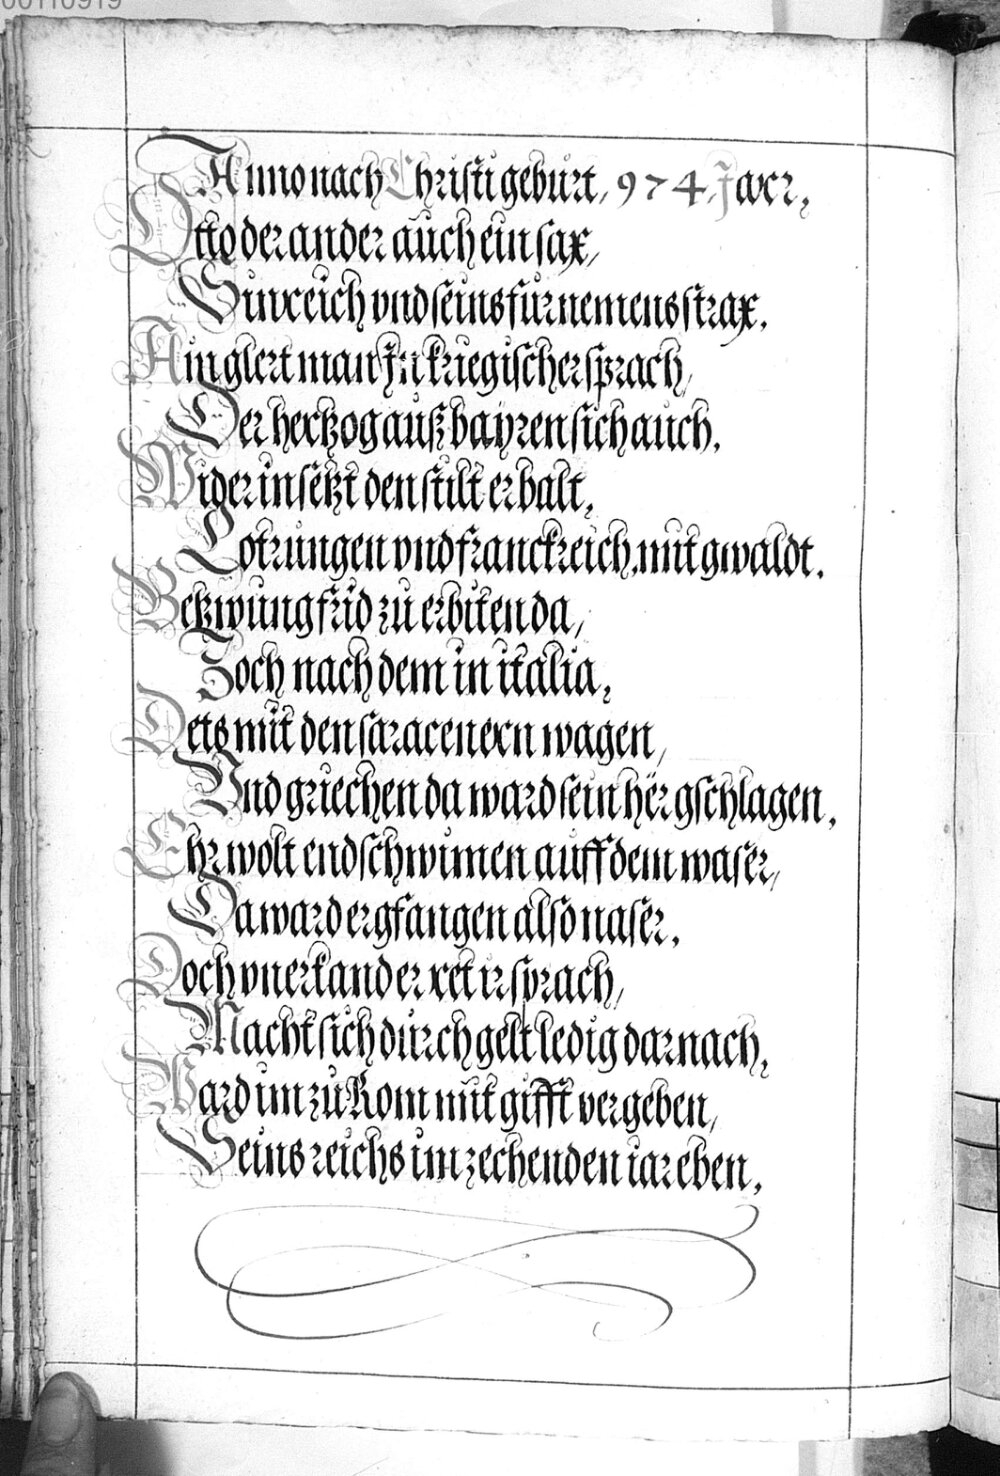 00110919
Anno nach Christi geburt, 974, Jaer,
Otto der ander auch ein sax,
Sinreich vnd seins furnemens strax.
Ain glert man In kriegischer sprach,
Der hertzog auß bayren sich auch.
Wider in setzt den stilt er balt,
Lotrungen vnd franckreich, mit gwaldt.
Betzwung frid zu erbiten da,
Zoch nach dem in italia,
Dets mit den saracenern wagen,
Vnd griechen da ward sein hër gschlagen,
Ehr wolt endschwimen auff dem waser,
Da ward er gfangen also naser.
Doch vnerkand er ret ir sprach,
Macht sich durch gelt ledig darnach,
Ward im zu Rom mit gifft vergeben,
Seins reichs im zechenden iar eben,